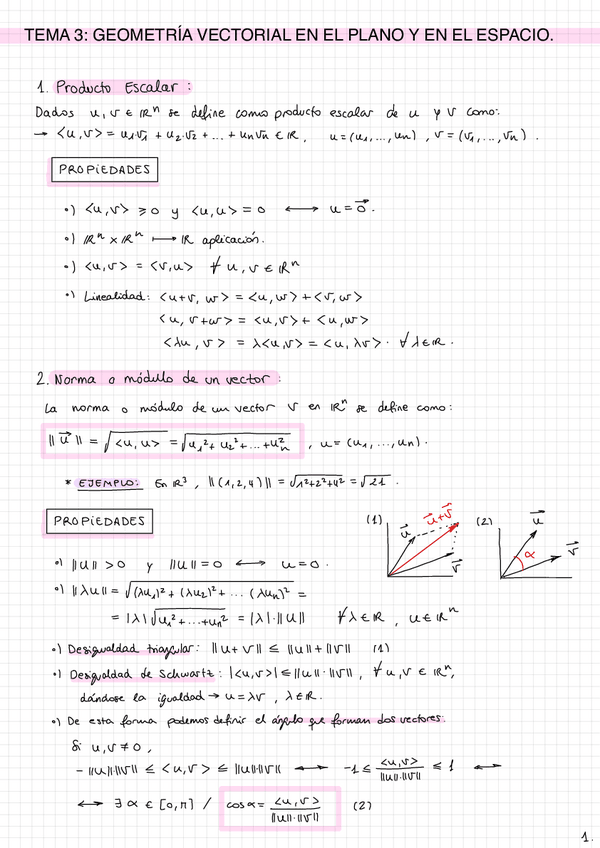 TEMA 3: GEOMETRÍA VECTORIAL EN EL PLANO Y EN EL ESPACIO.
1. Producto Escalar :
Dados u, v ∈ ℝⁿ se define como producto escalar de u y v como:
→ <u,v> = u₁·v₁ + u₂·v₂ + ... + uₙvₙ ∈ ℝ, u = (u₁,...,uₙ) , v = (v₁,...,vₙ) .
PROPIEDADES
•) <u,v> ≥ 0 y <u,u> = 0 ⟷ u = 0⃗ .
•) ℝⁿ × ℝⁿ ⟼ ℝ aplicación.
•) <u,v> = <v,u> ∀ u, v ∈ ℝⁿ
•) Linealidad: <u+v, w> = <u,w> + <v,w>
<u, v+w> = <u,v> + <u,w>
<λu, v> = λ<u,v> = <u, λv> · ∀ λ ∈ ℝ .
2. Norma o módulo de un vector :
La norma o módulo de un vector v en ℝⁿ se define como:
‖u⃗‖ = √<u,u> = √u₁²+u₂²+...+uₙ² , u = (u₁,...,uₙ) .
* EJEMPLO: En ℝ³ , ‖(1,2,4)‖ = √1²+2²+4² = √21 .
PROPIEDADES
(1) u⃗ u⃗+v⃗ v⃗ (2) u⃗ α v⃗
•) ‖u‖ > 0 y ‖u‖ = 0 ⟷ u = 0 .
•) ‖λu‖ = √(λu₁)² + (λu₂)² + ... (λuₙ)² =
= |λ|√u₁²+...+uₙ² = |λ|·‖u‖ ∀ λ ∈ ℝ , u ∈ ℝⁿ
•) Desigualdad triangular: ‖u+v‖ ≤ ‖u‖+‖v‖ (1)
•) Desigualdad de Schwartz : |<u,v>| ≤ ‖u‖·‖v‖ , ∀ u, v ∈ ℝⁿ,
dándose la igualdad → u = λv , λ ∈ ℝ.
•) De esta forma podemos definir el ángulo que forman dos vectores:
Si u, v ≠ 0 ,
- ‖u‖·‖v‖ ≤ <u,v> ≤ ‖u‖·‖v‖ ⟷ -1 ≤ <u,v> / ‖u‖·‖v‖ ≤ 1 ⟷
⟷ ∃ α ∈ [0,π] / cos α = <u,v> / ‖u‖·‖v‖ (2)
1.